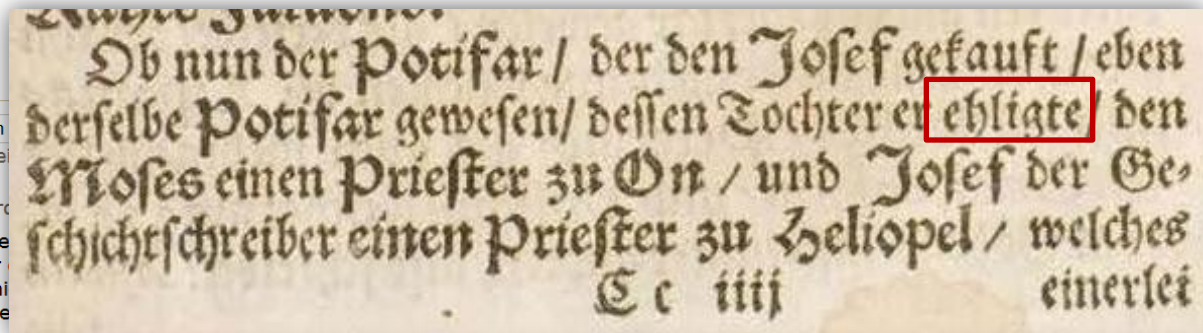 Ob nun der Potifar / der den Josef gekauft / eben
derselbe Potifar gewesen / dessen Tochter er ehligte / den
Moses einen Priester zu On / und Josef der Ge⸗
schichtschreiber einen Priester zu Heliopel / welches
Cc iiij einerlei